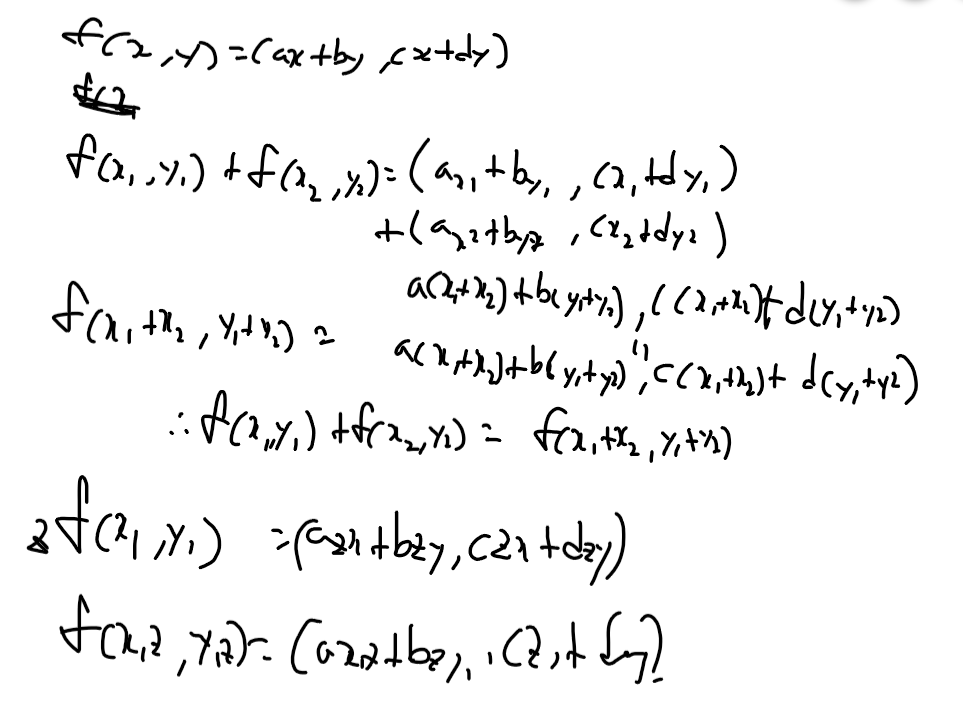 f(x,y)=(ax+by,cx+dy)
f(x1,y1)+f(x2,y2)=(ax1+by1,cx1+dy1)
+(ax2+by2,cx2+dy2)
a(x1+x2)+b(y1+y2),c(x1+x2)+d(y1+y2)
f(x1+x2,y1+y2)=
a(x1+x2)+b(y1+y2),c(x1+x2)+d(y1+y2)
∴f(x1,y1)+f(x2,y2)=f(x1+x2,y1+y2)
zf(x1,y1)=(azx+bzy,czx+dzy)
f(x1z,y1z)=(ax1z+bzy1,